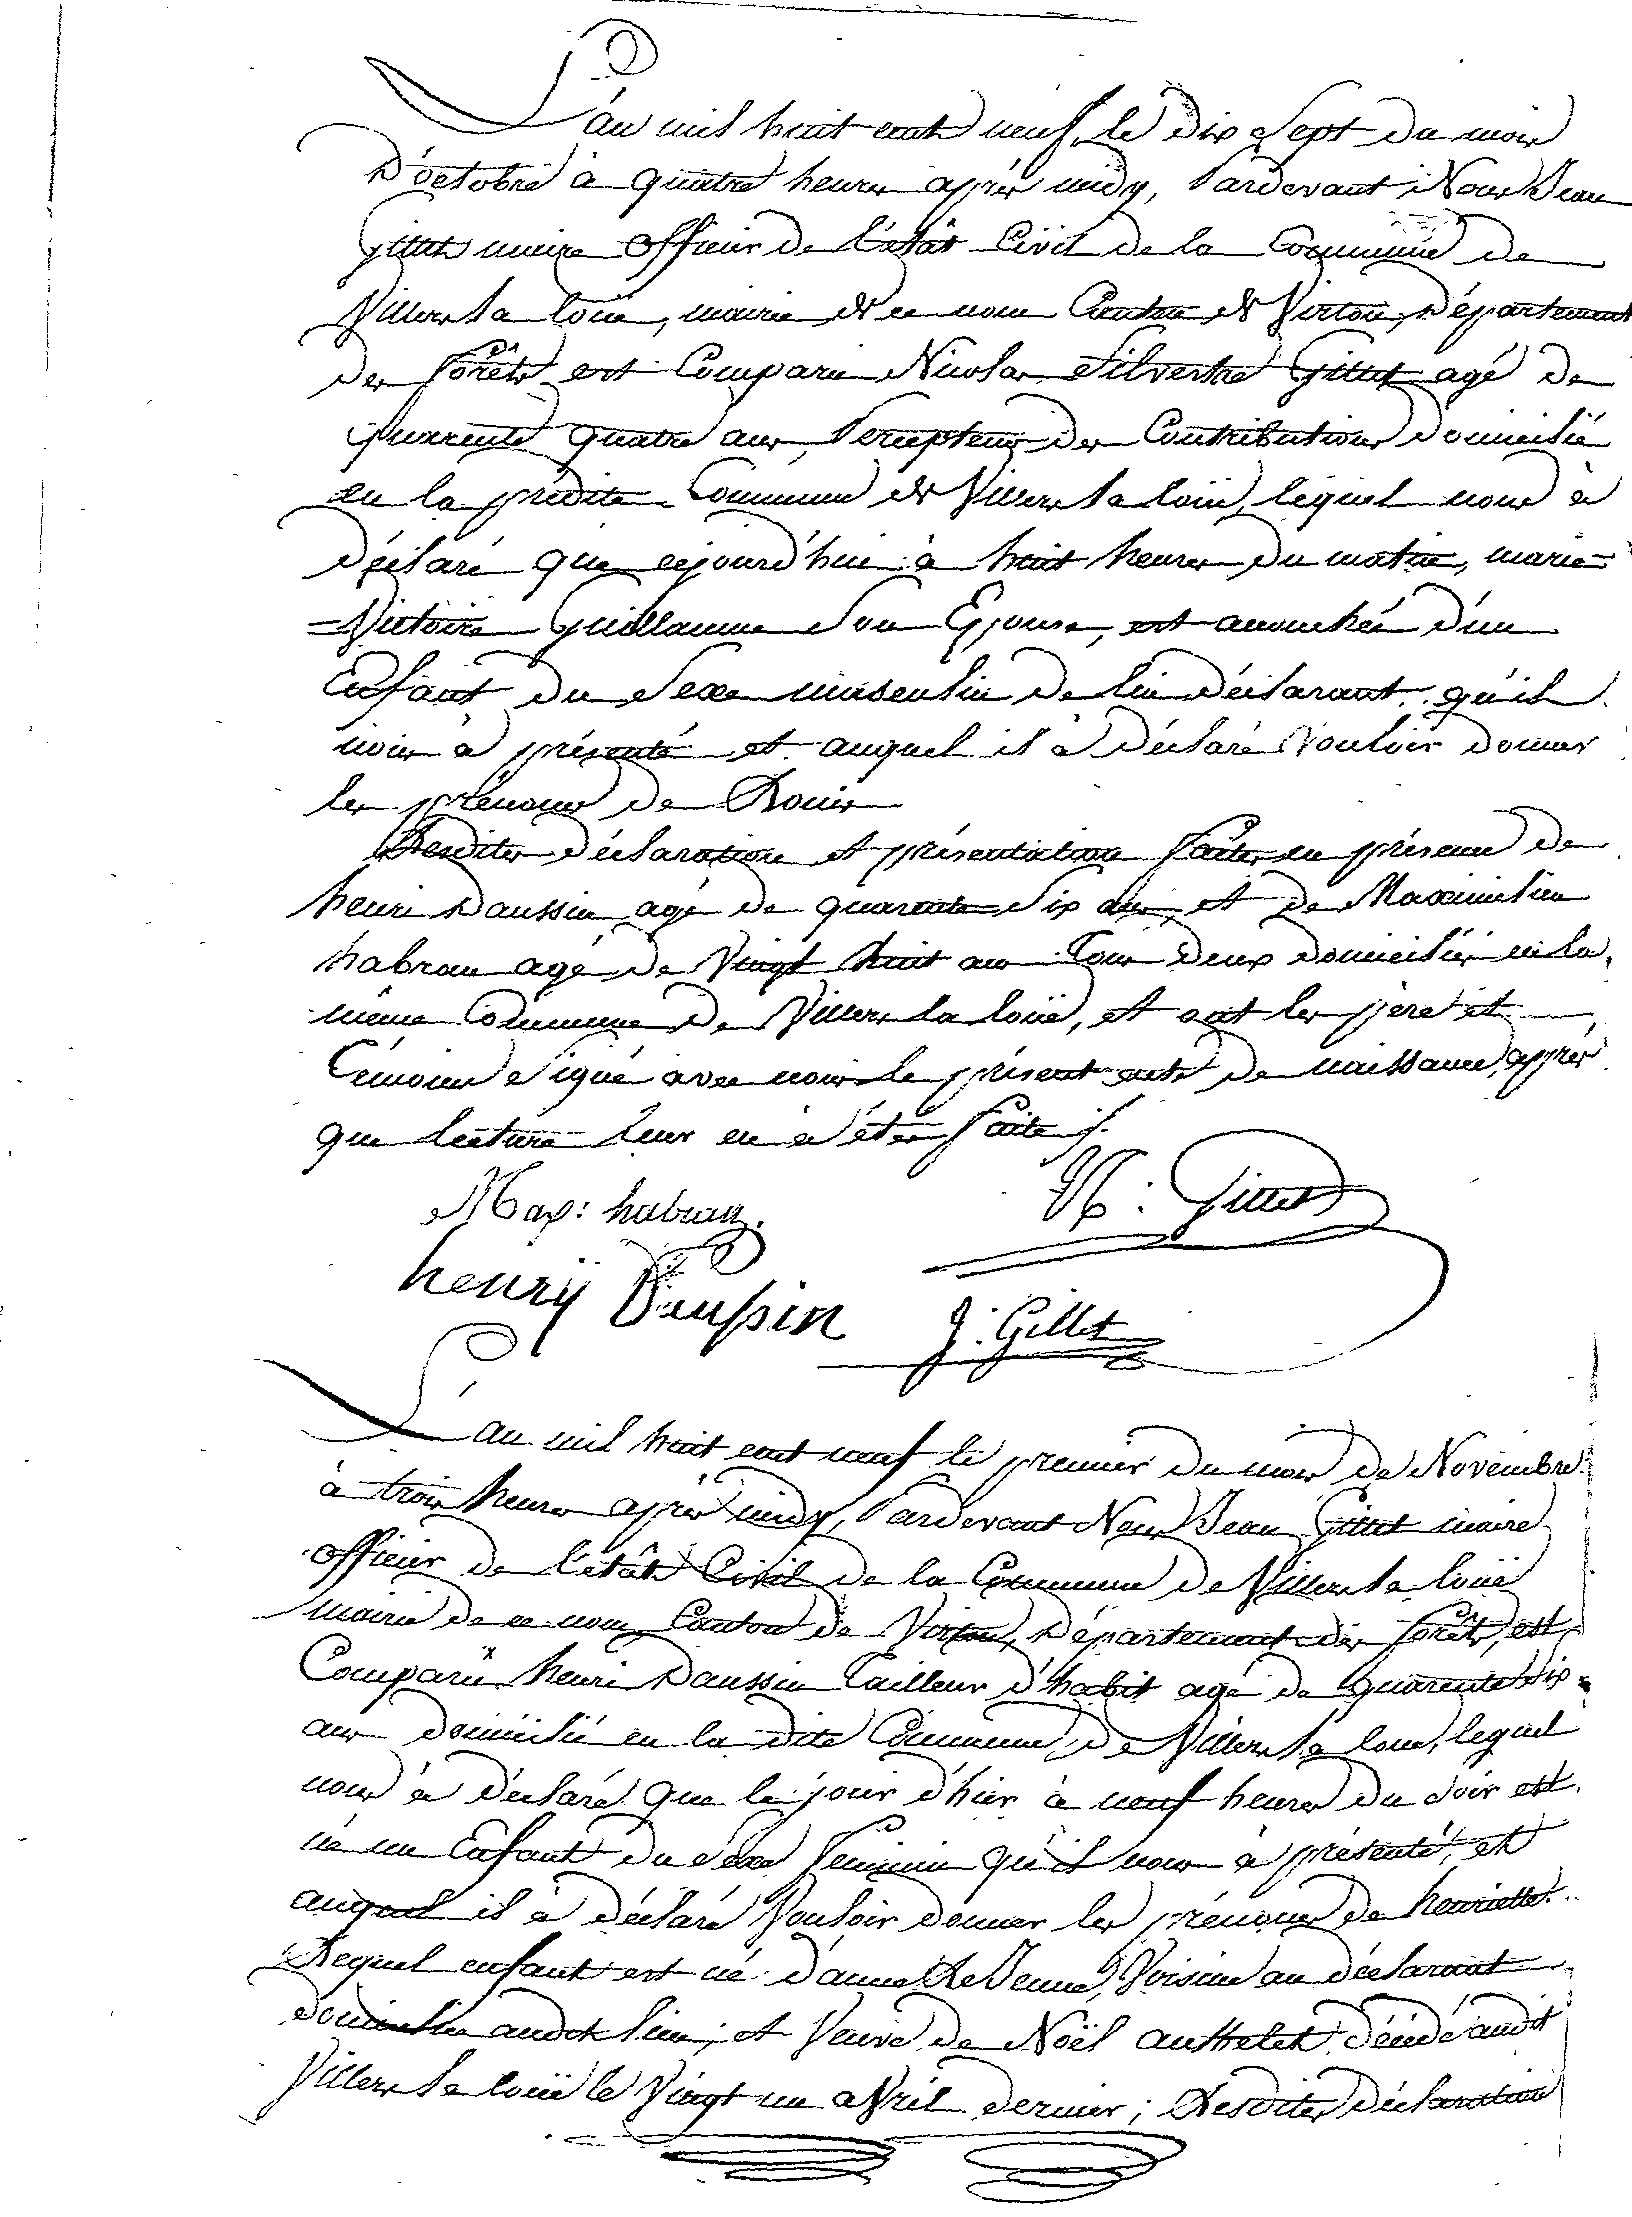 L'an mil huit cent neuf, le dix Sept du mois
D'octobre à quatre heures après midy, Pardevant Nous Jean
Gillet maire officier de l'état Civil de la Commune de
Villers la loüe, mairie de ce nom Canton de Virton, Département
des forêts est Comparu Nicolas Silvestre Gillet agé de
quarente quatre ans, Percepteur des Contributions domicilié
en la predite Commune de Villers la loüe, lequel nous à
Déclaré que cejourd'hui à huit heures du matin, marie=
=Victoire Guillaume Son Epouse, est accouchée d'un
Enfant du Sexe masculin de lui déclarant, qu'il
nous à présenté et auquel il à déclaré Vouloir donner
les prénoms de Louis
Lesdites déclaration et présentation faites en présence de
henri Daussin agé de quarante Six ans, et de Maximilien
habran agé de Vingt huit ans Tous deux domiciliés en la
même Commune de Villers la loüe, et ont les père et
Témoins Signé avec nous le présent acte de naissance, après
que lecture leur en à étée faite ./.
Max: habran.
N: Gillet
henrÿ Daussin
J: Gillet
L'an mil huit cent neuf le premier du mois de Novembre
à trois heures après midy, Pardevant Nous Jean Gillet maire
officier de l'état Civil de la Commune de Villers la loüe
mairie de ce nom Canton de Virton, Département des forêts, est
Comparu henri Daussin Tailleur d'habit agé de quarente Six
ans domicilié en la dite Commune de Villers la loue, lequel
nous à déclaré que le jour d'hier à neuf heures du Soir est
né un Enfant du Sexe Feminin qu'il nous à présenté, et
auquel il à déclaré Vouloir donner les prénoms de henriette.
Lequel enfant est né d'anne LeJeune, Voisine au déclarant
domiciliée audit lieu, et Veuve de Noël authelet décédé audit
Villers la loüe le Vingt un aVril dernier ; Lesdites déclaration